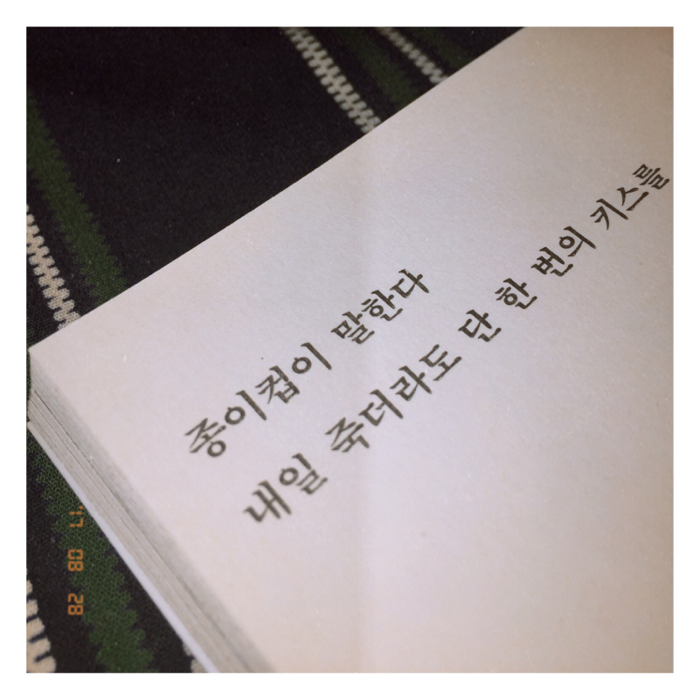 종이컵이 말한다
내일 죽더라도 단 한 번의 키스를
'17 08 28